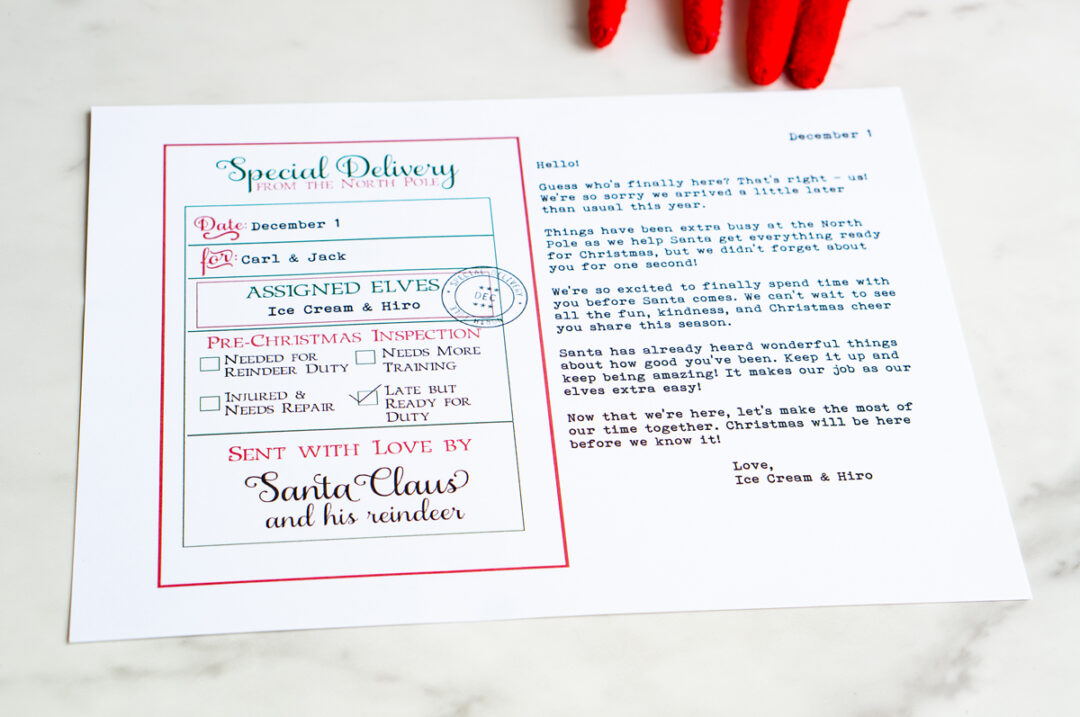 Special Delivery
FROM THE NORTH POLE
Date: December 1
for: Carl & Jack
ASSIGNED ELVES
Ice Cream & Hiro
SPECIAL DELIVERY
DEC
PRE-CHRISTMAS INSPECTION
NEEDED FOR
REINDEER DUTY
NEEDS MORE
TRAINING
INJURED &
NEEDS REPAIR
LATE BUT
READY FOR
DUTY
SENT WITH LOVE BY
Santa Claus
and his reindeer
December 1
Hello!
Guess who's finally here? That's right - us!
We're so sorry we arrived a little later
than usual this year.
Things have been extra busy at the North
Pole as we help Santa get everything ready
for Christmas, but we didn't forget about
you for one second!
We're so excited to finally spend time with
you before Santa comes. We can't wait to see
all the fun, kindness, and Christmas cheer
you share this season.
Santa has already heard wonderful things
about how good you've been. Keep it up and
keep being amazing! It makes our job as our
elves extra easy!
Now that we're here, let's make the most of
our time together. Christmas will be here
before we know it!
Love,
Ice Cream & Hiro